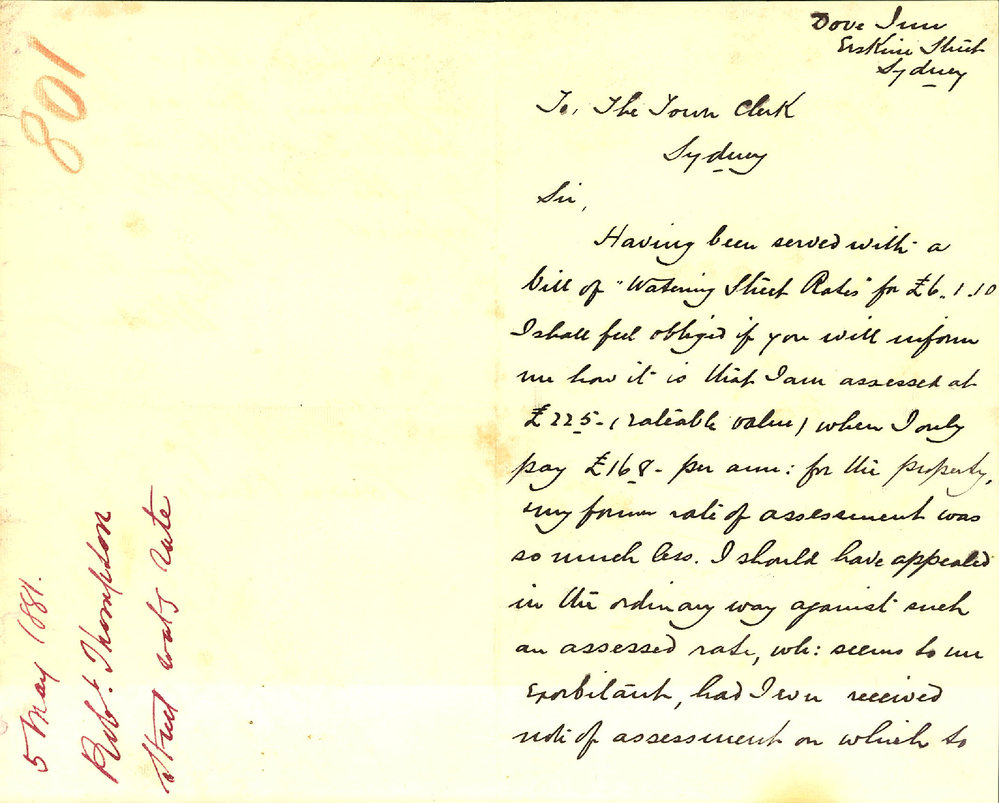 801
5 May 1881.
Robt. Thompson
Street watg rate
Dove Inn
Erskine Street
Sydney
To, The Town Clerk
Sydney
Sir,
Having been served with a
bill of "Watering Street Rates" for £6.1.10
I shall feel obliged if you will inform
me how it is that I am assessed at
£225- (rateable value) when I only
pay £168- per ann: for the property,
my former rate of assessment was
so much less. I should have appealed
in the ordinary way against such
an assessed rate, wh: seems to me
Exorbitant, had I ever received
note of assessment on which to